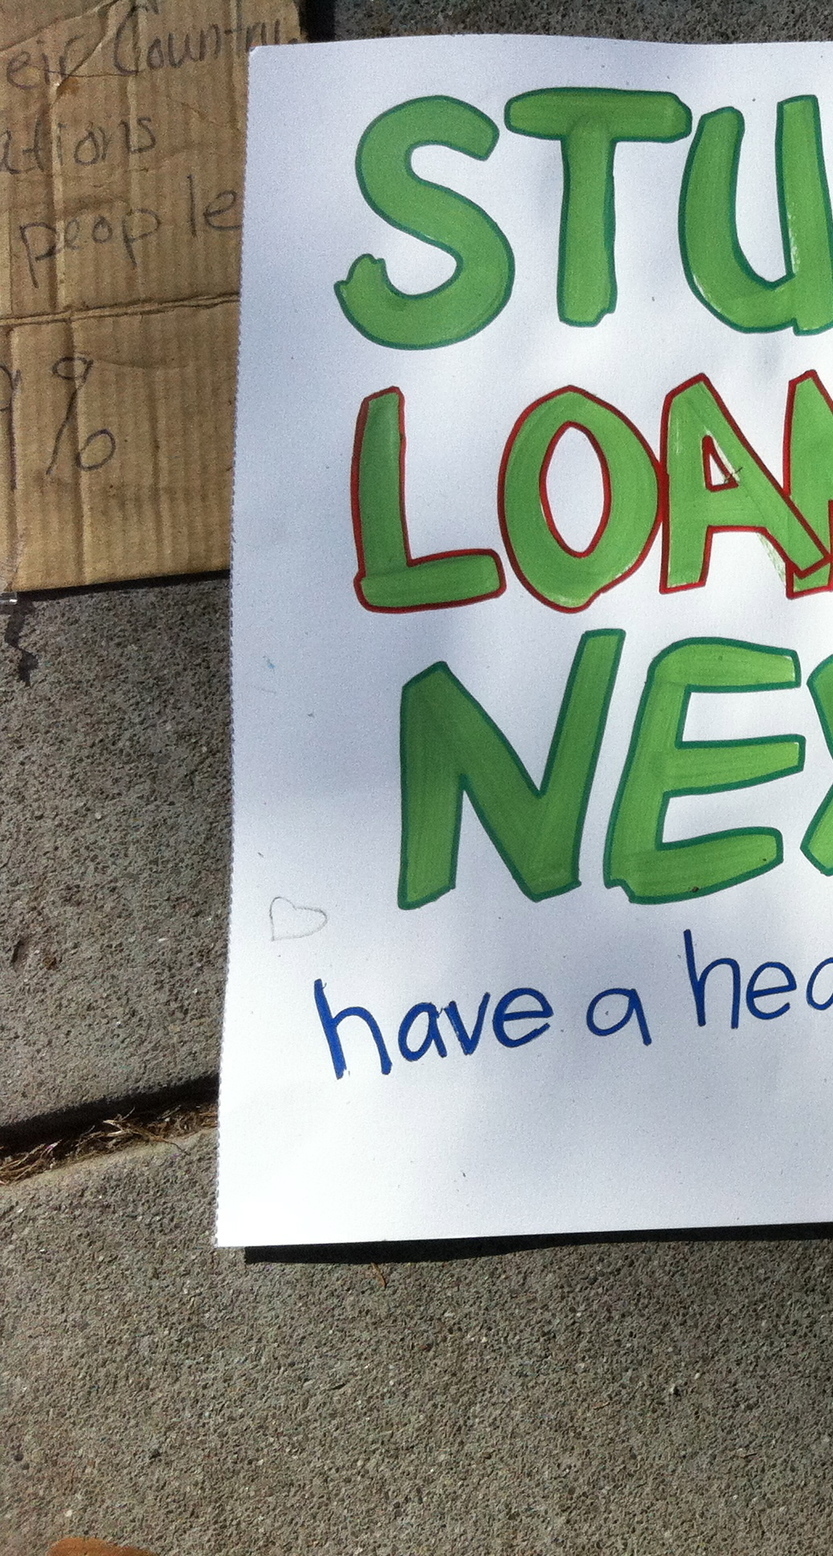 eir Country
ations
people
%
STU
LOA
NE
have a hea